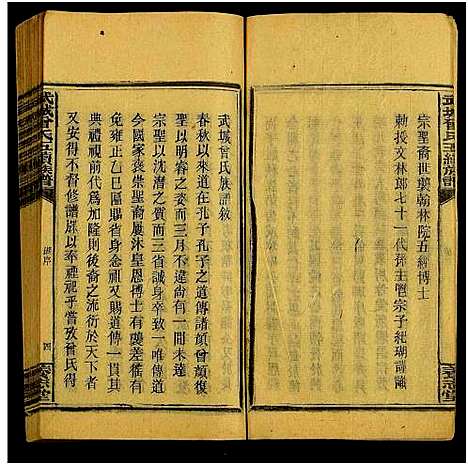 宗聖裔世襲翰林院五經博士
勅授文林郎七十一代孫主鬯宗子紀瑚
武城曾氏族譜敘
春秋以來道在孔子孔子之道傳諸顏曾顏復
聖以明睿之而三月不違尚有一間未達
聖以沈潛之而三省誠身卒致一唯傳道
今國家褒崇聖裔屢沐皇恩博士有廕差徭有
免雍正乙巳匾賜省身念祀又賜道傳一貫其
典禮視前代為加隆則後裔之流衍於天下者
又安得不書修譜以奉禮祀乎嘗攷曾氏得
武城曾氏五續族譜
序
四
武城曾氏五續族譜